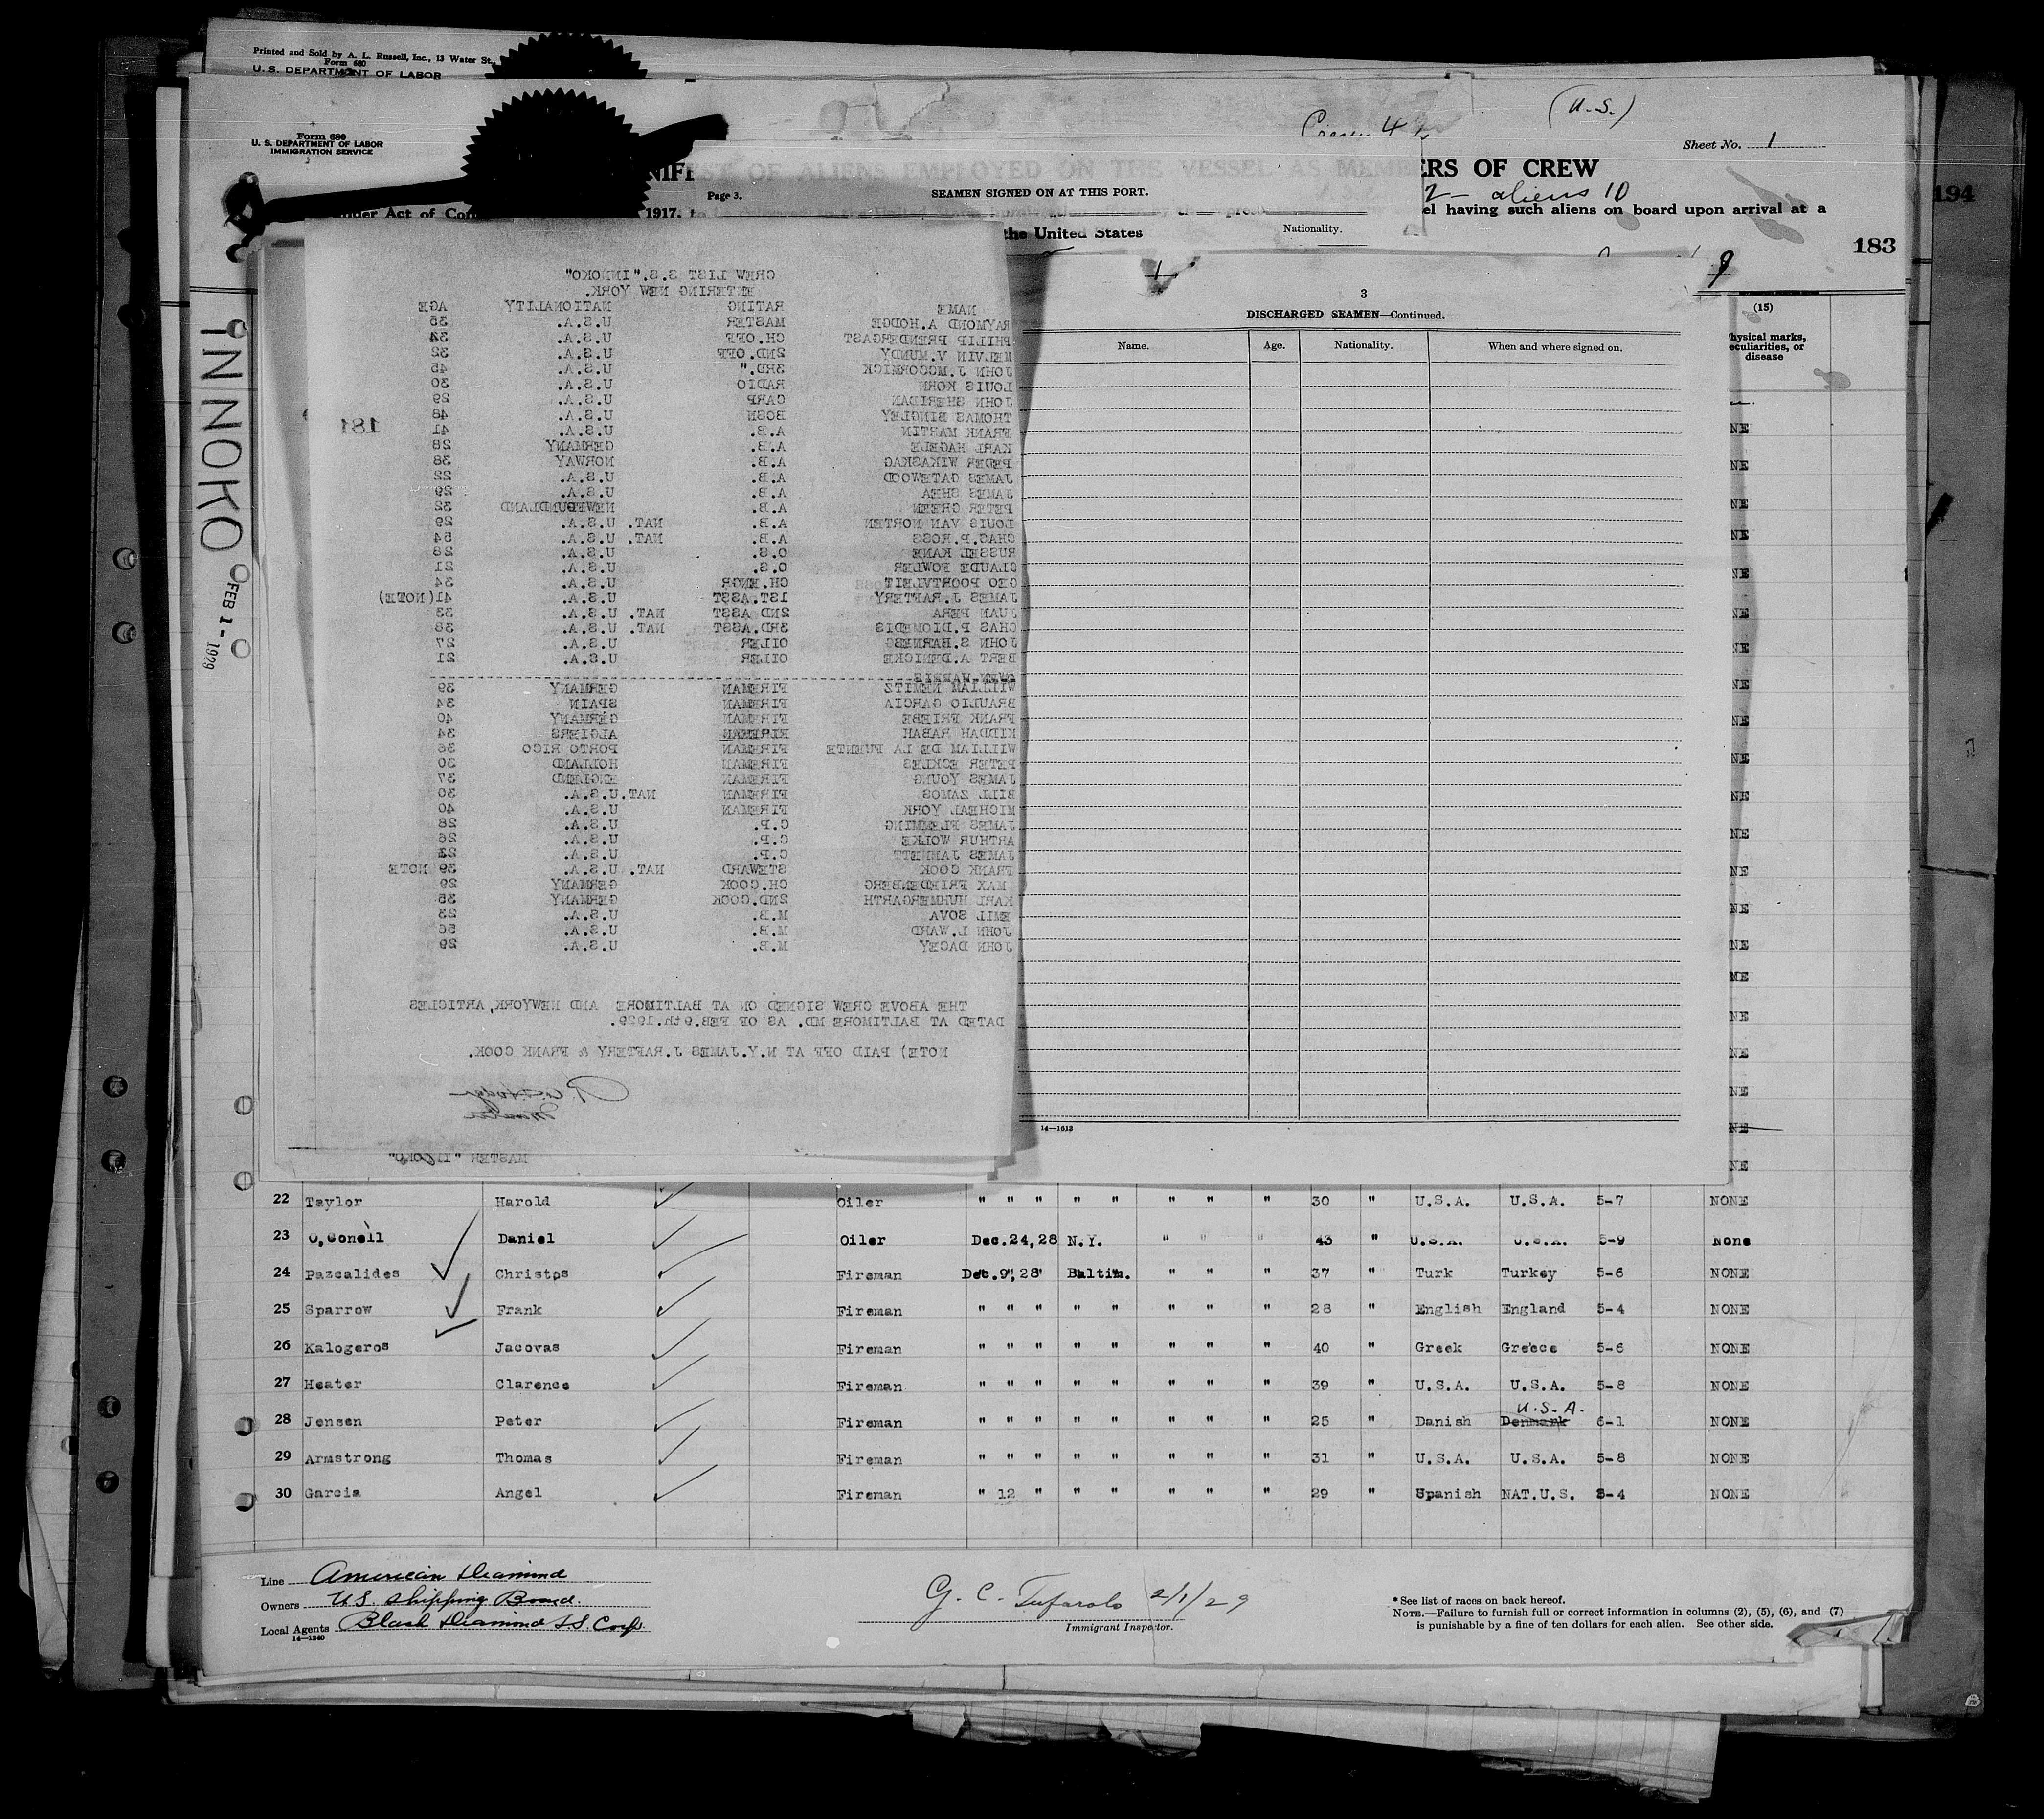 Printed and Sold by A. L. Russell, Inc., 13 Water St.,
Form 680
U. S. DEPARTMENT OF LABOR
(U.S.)
Form 680
U. S. DEPARTMENT OF LABOR
IMMIGRATION SERVICE
Sheet No. 1
OF ALIENS EMPLOYED ON THE VESSEL AS MEMBERS OF CREW
Page 3.
SEAMEN SIGNED ON AT THIS PORT.
2 - aliens 10
194
1917,
having such aliens on board upon arrival at a
the United States
Nationality.
183
INNOKO
FEB 1 - 1929
181
CREW LIST S.S."INNOKO"
ENTERING NEW YORK.
NAME RATING NATIONALITY AGE
RAYMOND A.HODGE MASTER U.S.A. 35
PHILIP PRENDERGAST CH.OFF U.S.A. 34
MELVIN V.MUNDY 2ND.OFF U.S.A. 32
JOHN J.MCCORMICK 3RD." U.S.A. 45
LOUIS KORN RADIO U.S.A. 30
JOHN SHERIDAN CARP U.S.A. 29
THOMAS BINGLEY BOSN U.S.A. 48
FRANK MARTIN A.B. U.S.A. 41
KARL HAGELE A.B. GERMANY 28
PEDER WIKASKAG A.B. NORWAY 38
JAMES GATEWOOD A.B. U.S.A. 22
JAMES SHEA A.B. U.S.A. 29
PETER GREEN A.B. NEWFOUNDLAND 32
LOUIS VAN NORTEN A.B. NAT. U.S.A. 29
CHAS.P.ROSS A.B. NAT. U.S.A. 54
RUSSEL KANE O.S. U.S.A. 28
CLAUDE FOWLER O.S. U.S.A. 21
GEO POORTVLEIT CH.ENGR U.S.A. 34
JAMES J.RAFTERY 1ST.ASST U.S.A. 41(NOTE)
JUAN PERA 2ND ASST NAT. U.S.A. 33
CHAS P.DIOMEDIS 3RD.ASST NAT. U.S.A. 38
JOHN S.BARNES OILER U.S.A. 27
BERT A.DENICKE OILER U.S.A. 21
OWEN HARRIS
WILLIAM NEMITZ FIREMAN GERMANY 39
BRAULIO GARCIA FIREMAN SPAIN 34
FRANK FRIEBE FIREMAN GERMANY 40
KIDDAH RABAH FIREMAN ALGIERS 34
WILLIAM DE LA FUENTE FIREMAN PORTO RICO 36
PETER ECKLES FIREMAN HOLLAND 30
JAMES YOUNG FIREMAN ENGLEND 37
BILL ZAMOS FIREMAN NAT.U.S.A. 30
MICHEAL YORK FIREMAN U.S.A. 40
JAMES FLEMING C.P. U.S.A. 28
ARTHUR WOLKE C.P. U.S.A. 26
JAMES JANNETT C.P. U.S.A.
FRANK COOK STEWARD NAT. U.S.A. 39 NOTE
MAX FRIEDENBERG CH.COOK GERMANY 29
KARL HUMMERGARTH 2ND.COOK GERMANY 35
EMIL SOVA M.B. U.S.A. 23
JOHN L.WARD M.B. U.S.A. 56
JOHN DACEY M.B. U.S.A. 29
THE ABOVE CREW SIGNED ON AT BALTIMORE AND NEWYORK,ARTICLES
DATED AT BALTIMORE MD. AS OF FEB.9th.1929.
NOTE) PAID OFF AT N.Y.JAMES J.RAFTERY & FRANK COOK.
Master
MASTER "INNOKO"
3
DISCHARGED SEAMEN—Continued.
Name. Age. Nationality. When and where signed on.
14—1613
(15)
Physical marks, peculiarities, or disease
22 Taylor Harold Oiler " " " " " " " " 30 " U.S.A. U.S.A. 5-7 NONE
23 O,Conell Daniel Oiler Dec.24,28 N.Y. " " " 43 " U.S.A. U.S.A. 5-9 None
24 Pazcalides Christos Fireman Dec.9,28 Baltim. " " " 37 " Turk Turkey 5-6 NONE
25 Sparrow Frank Fireman " " " " " " " " 28 " English England 5-4 NONE
26 Kalogeros Jacovas Fireman " " " " " " " " 40 " Greek Greece 5-6 NONE
27 Heater Clarence Fireman " " " " " " " " 39 " U.S.A. U.S.A. 5-8 NONE
U.S.A.
28 Jensen Peter Fireman " " " " " " " " 25 " Danish Denmark 6-1 NONE
29 Armstrong Thomas Fireman " " " " " " " " 31 " U.S.A. U.S.A. 5-8 NONE
30 Garcia Angel Fireman " 12 " " " " " " 29 " Spanish NAT.U.S. 5-4 NONE
Line American Diamond
Owners U.S. Shipping Board.
Local Agents Black Diamond S.S. Corp.
14—1240
G. C. Tufarolo 2/1/29
Immigrant Inspector.
* See list of races on back hereof.
NOTE.—Failure to furnish full or correct information in columns (2), (5), (6), and (7)
is punishable by a fine of ten dollars for each alien. See other side.